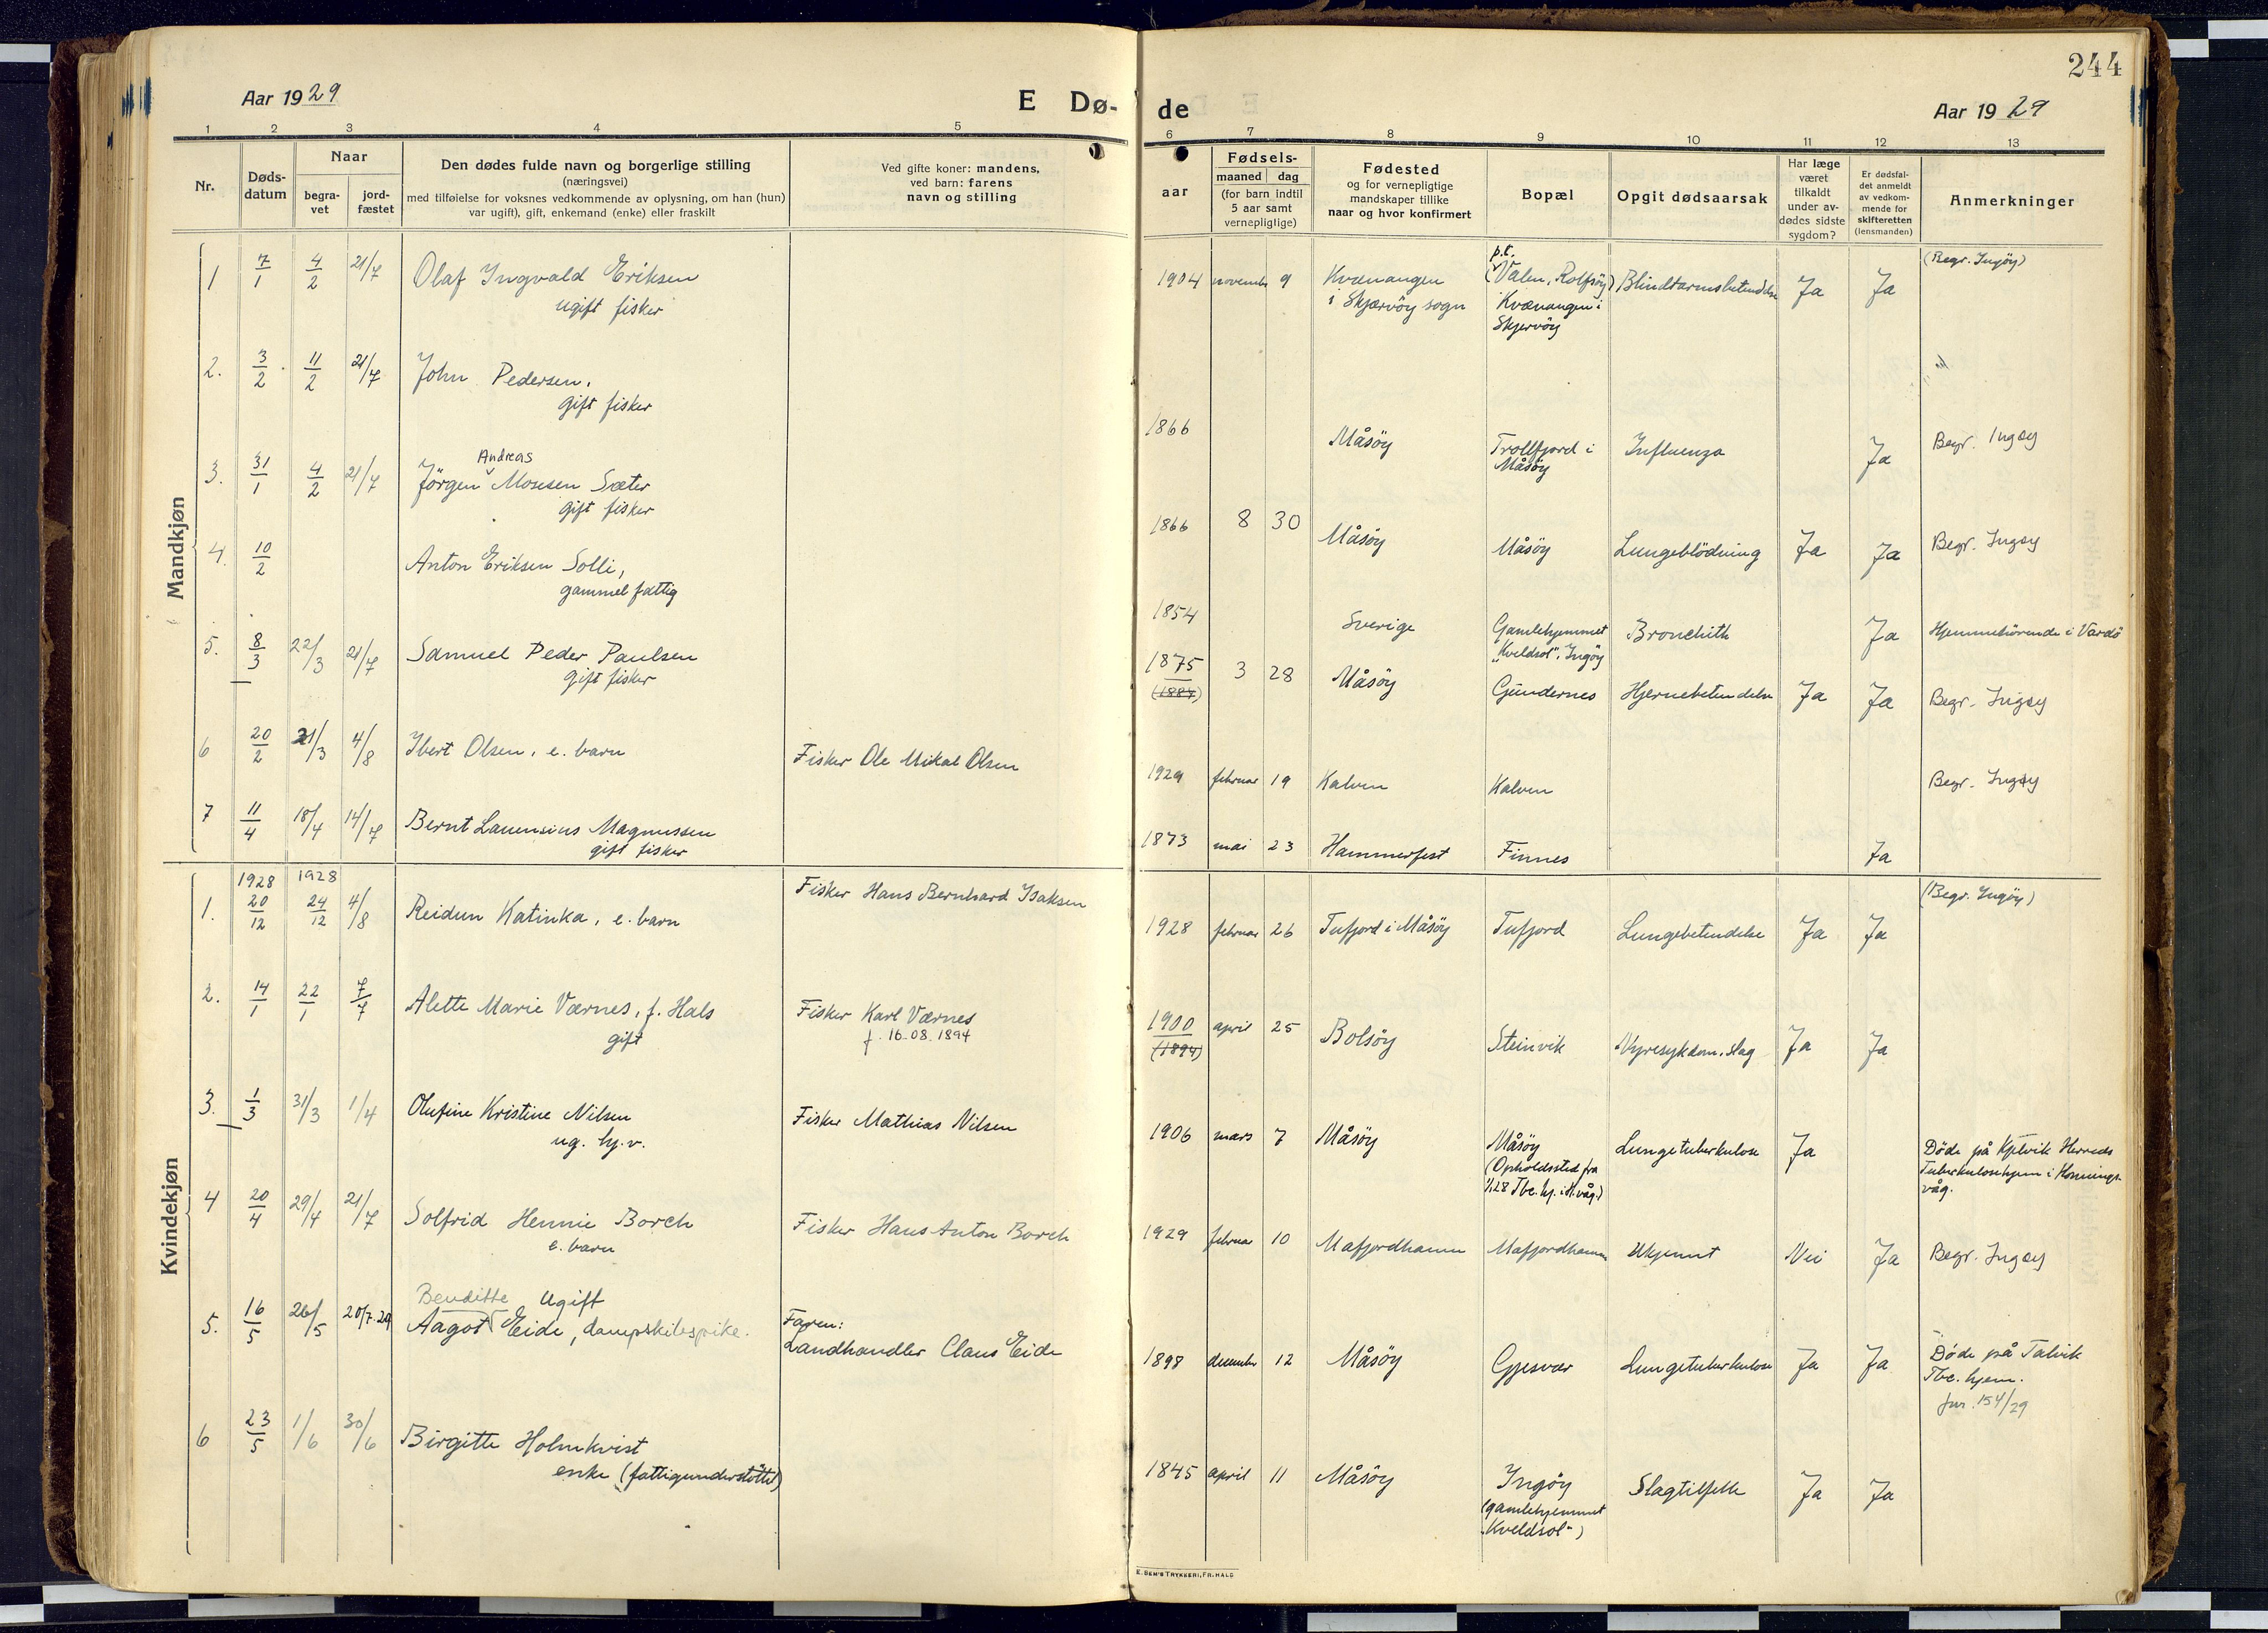 244
Aar 1929
E Dø-
de
Aar 1929
1 2 3 4 5 6 7 8 9 10 11 12 13
Nr.
Døds-
datum
Naar
begra-
vet
jord-
fæstet
Den dødes fulde navn og borgerlige stilling
(næringsvei)
med tilføielse for voksnes vedkommende av oplysning, om han (hun)
var ugift), gift, enkemand (enke) eller fraskilt
Ved gifte koner: mandens,
ved barn: farens
navn og stilling
aar
Fødsels-
maaned dag
(for barn indtil
5 aar samt
vernepligtige)
Fødested
og for vernepligtige
mandskaper tillike
naar og hvor konfirmert
Bopæl
Opgit dødsaarsak
Har læge
været
tilkaldt
under av-
dødes sidste
sygdom?
Er dødsfal-
det anmeldt
av vedkom-
mende for
skifteretten
(lensmanden)
Anmerkninger
Mandkjøn
1 7/1 4/2 21/7 Olaf Ingvald Eriksen
ugift fisker
1904 november 9 Kvænangen
i Skjærvöy sogn
p.t.
(Valen, Rolfsöy)
Kvænangen i
Skjervöy
Blindtarmsbetendelse Ja Ja (Begr. Ingöy)
2. 3/2 11/2 21/7 John Pedersen,
gift fisker
1866 Måsöy Trollfjord i
Måsöy
Influenza Ja Begr. Ingöy
3. 31/1 4/2 21/7 Andreas
Jörgen Mosesen Sæter
gift fisker
1866 8 30 Måsöy Måsöy Lungeblödning Ja Ja Begr. Ingöy
4. 10/2 Anton Eriksen Solli,
gammel fattig
1854 Sverige Gamlehjemmet
"Kveldsol", Ingöy
Bronchith Ja Hjemmehörende i Vardö
5. 8/3 22/3 21/7 Samuel Peder Paulsen
gift fisker
1875
(1884)
3 28 Måsöy Gunnernes Hjernebetendelse Ja Ja Begr. Ingöy
6 20/2 21/3 4/8 Ibert Olsen, e. barn Fisker Ole Mikal Olsen
1929 februar 19 Kalven Kalven Begr. Ingöy
7 11/4 18/4 14/7 Bernt Laurensius Magnussen
gift fisker
1873 mai 23 Hammerfest Finnes Ja
Kvindekjøn
1928 1928
1. 20/12 24/12 4/8 Reidun Katinka, e. barn Fisker Hans Bernhard Isaksen
1928 februar 26 Tufjord i Måsöy Tufjord Lungebetendelse Ja Ja (Begr. Ingöy)
2. 14/1 22/1 7/7 Alette Marie Værnes, f. Hals
gift
Fisker Karl Værnes
f. 16.08.1894
1900
(1894)
april 25 Bolsöy Steinvik Nyresykdom, slag Ja Ja
3. 1/3 31/3 1/4 Olufine Kristine Nilsen
ug. hj.v.
Fisker Mathias Nilsen
1906 mars 7 Måsöy Måsöy
(Opholdssted fra
1/1 28 Tbc. hj. i H.våg.)
Lungetuberkulose Ja Döde på Kjelvik Herreds
Tuberkulosehjem i Honnings-
våg.
4 20/4 29/4 21/7 Solfrid Hennie Borch
e. barn
Fisker Hans Anton Borch
1929 februar 10 Mafjordhamn Mafjordhamn Ukjennt Nei Ja Begr. Ingöy
5. 16/5 26/5 20/7.29 Benditte Ugift
Aagot Eide, dampskibspike.
Faren:
Landhandler Claus Eide
1898 december 12 Måsöy Gjesvær Lungetuberkulose Ja Ja Döde på Talvik
Tbc. hjem.
Jnr. 154/29
6 23/5 1/6 30/6 Birgitte Holmkvist
enke (fattigunderstöttet)
1845 april 11 Måsöy Ingöy
(gamlehjemmet
"Kveldsol")
Slagtilfelle Ja Ja
E. SEM'S TRYKKERI, FR.HALD